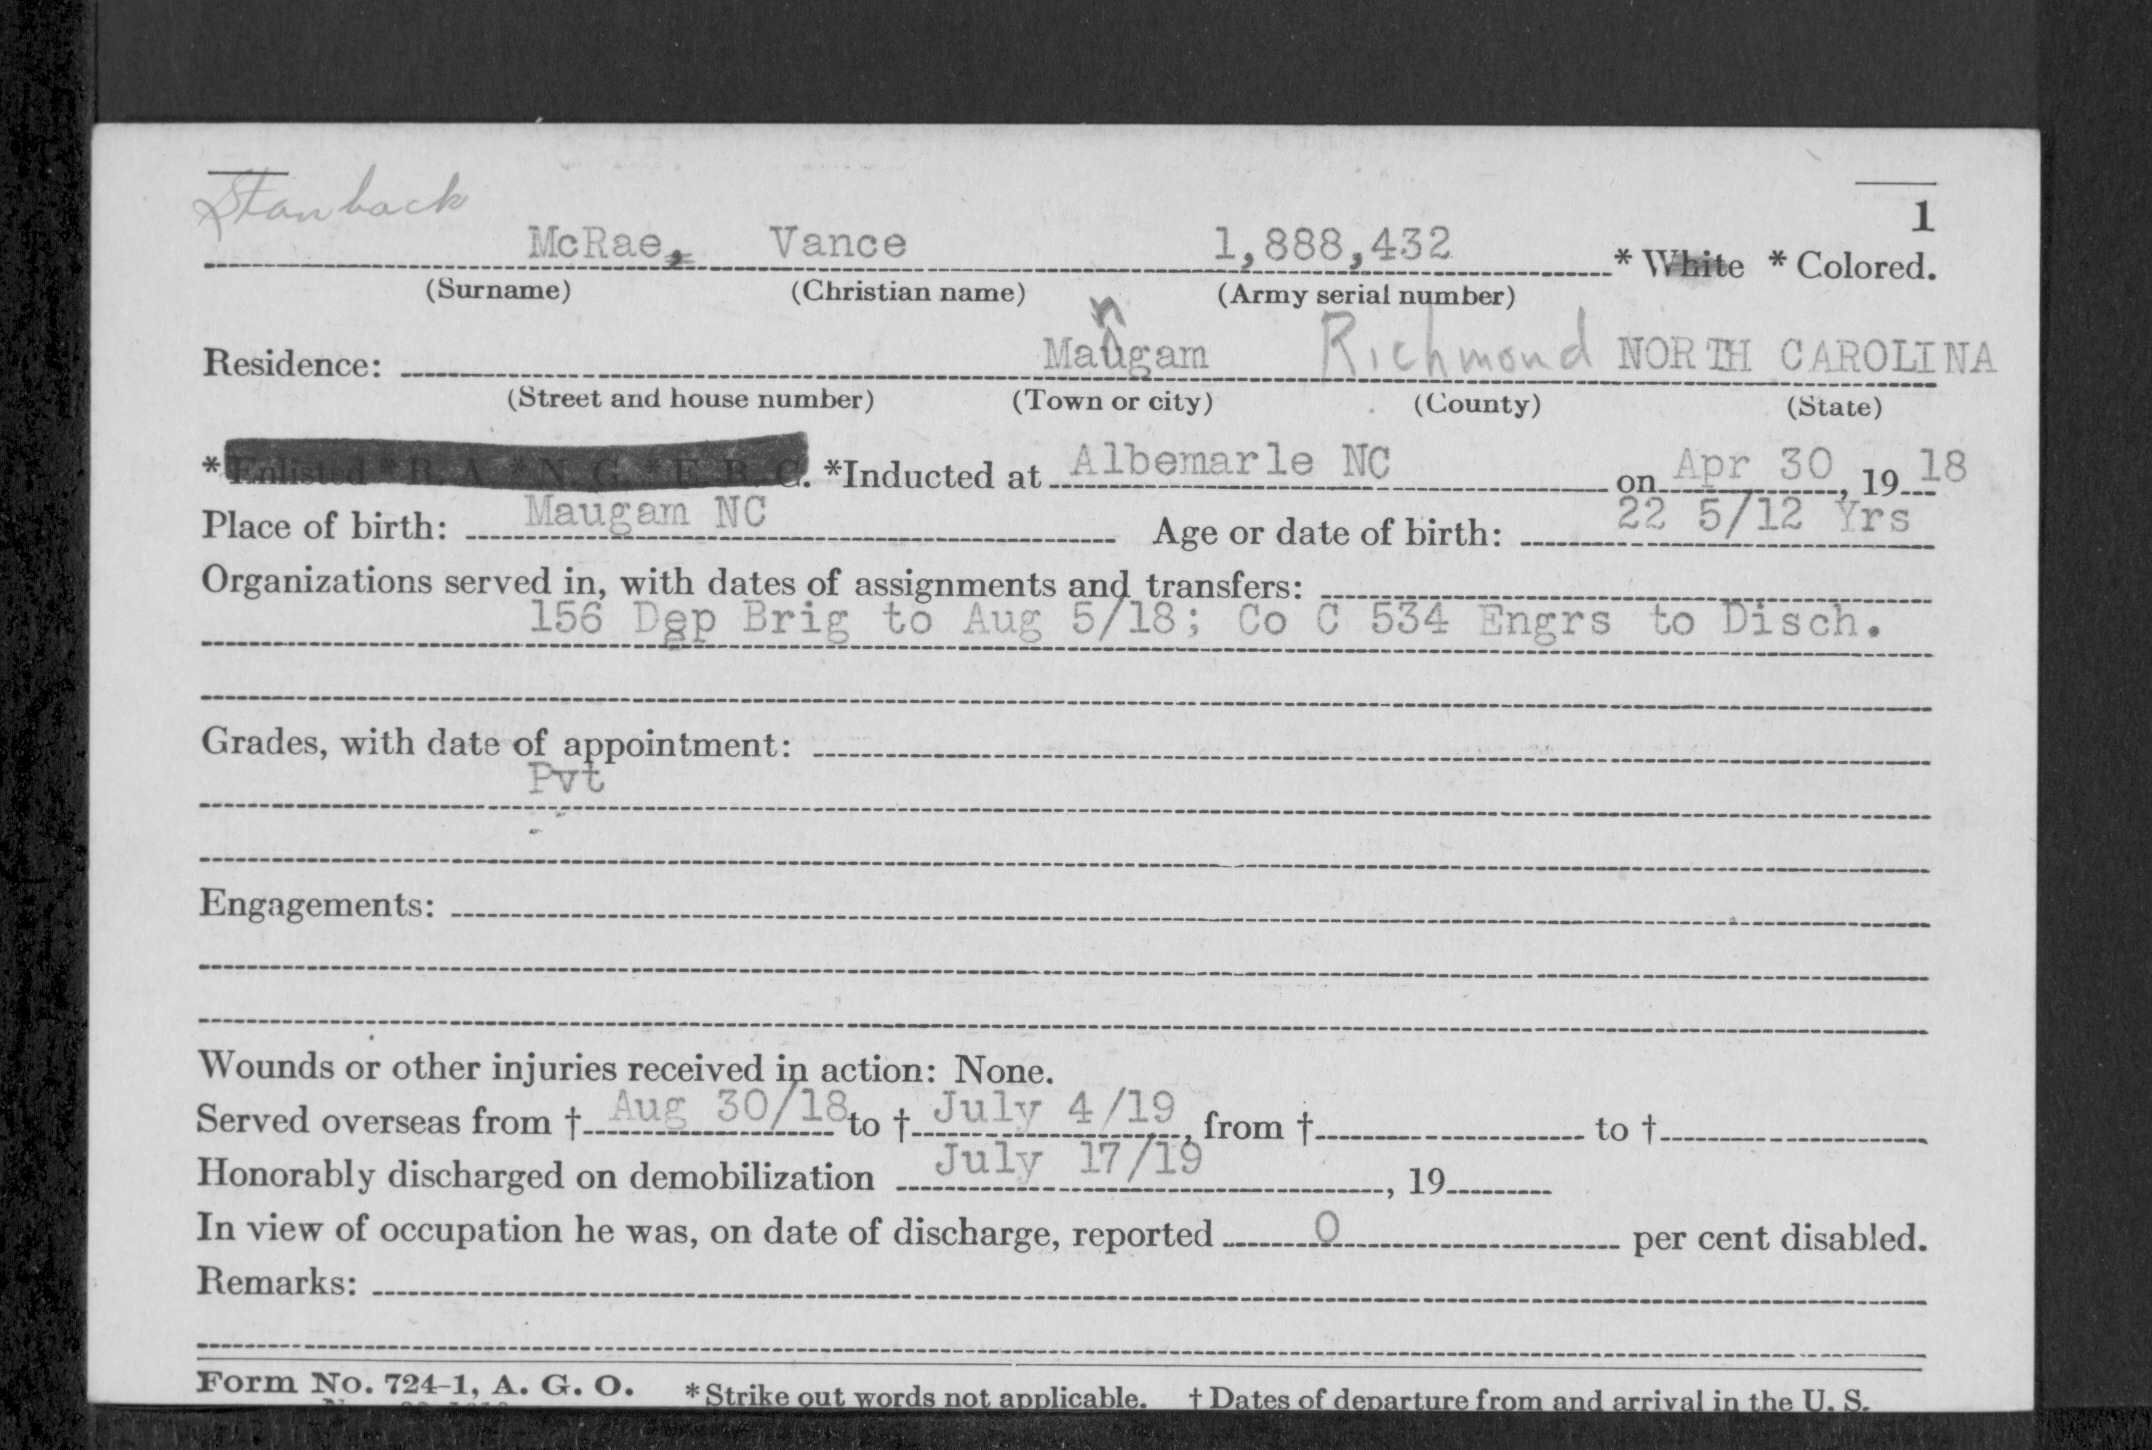 Stanback
1
McRae, Vance 1,888,432 * White * Colored.
(Surname) (Christian name) (Army serial number)
n
Residence: Maugam Richmond NORTH CAROLINA
(Street and house number) (Town or city) (County) (State)
*Enlisted *R. A. *N. G. *E. R. C. *Inducted at Albemarle NC on Apr 30, 19 18
Place of birth: Maugam NC Age or date of birth: 22 5/12 Yrs
Organizations served in, with dates of assignments and transfers:
156 Dep Brig to Aug 5/18; Co C 534 Engrs to Disch.
Grades, with date of appointment:
Pvt
Engagements:
Wounds or other injuries received in action: None.
Served overseas from † Aug 30/18 to † July 4/19, from † to †
Honorably discharged on demobilization July 17/19, 19
In view of occupation he was, on date of discharge, reported 0 per cent disabled.
Remarks:
Form No. 724-1, A. G. O. * Strike out words not applicable. † Dates of departure from and arrival in the U. S.